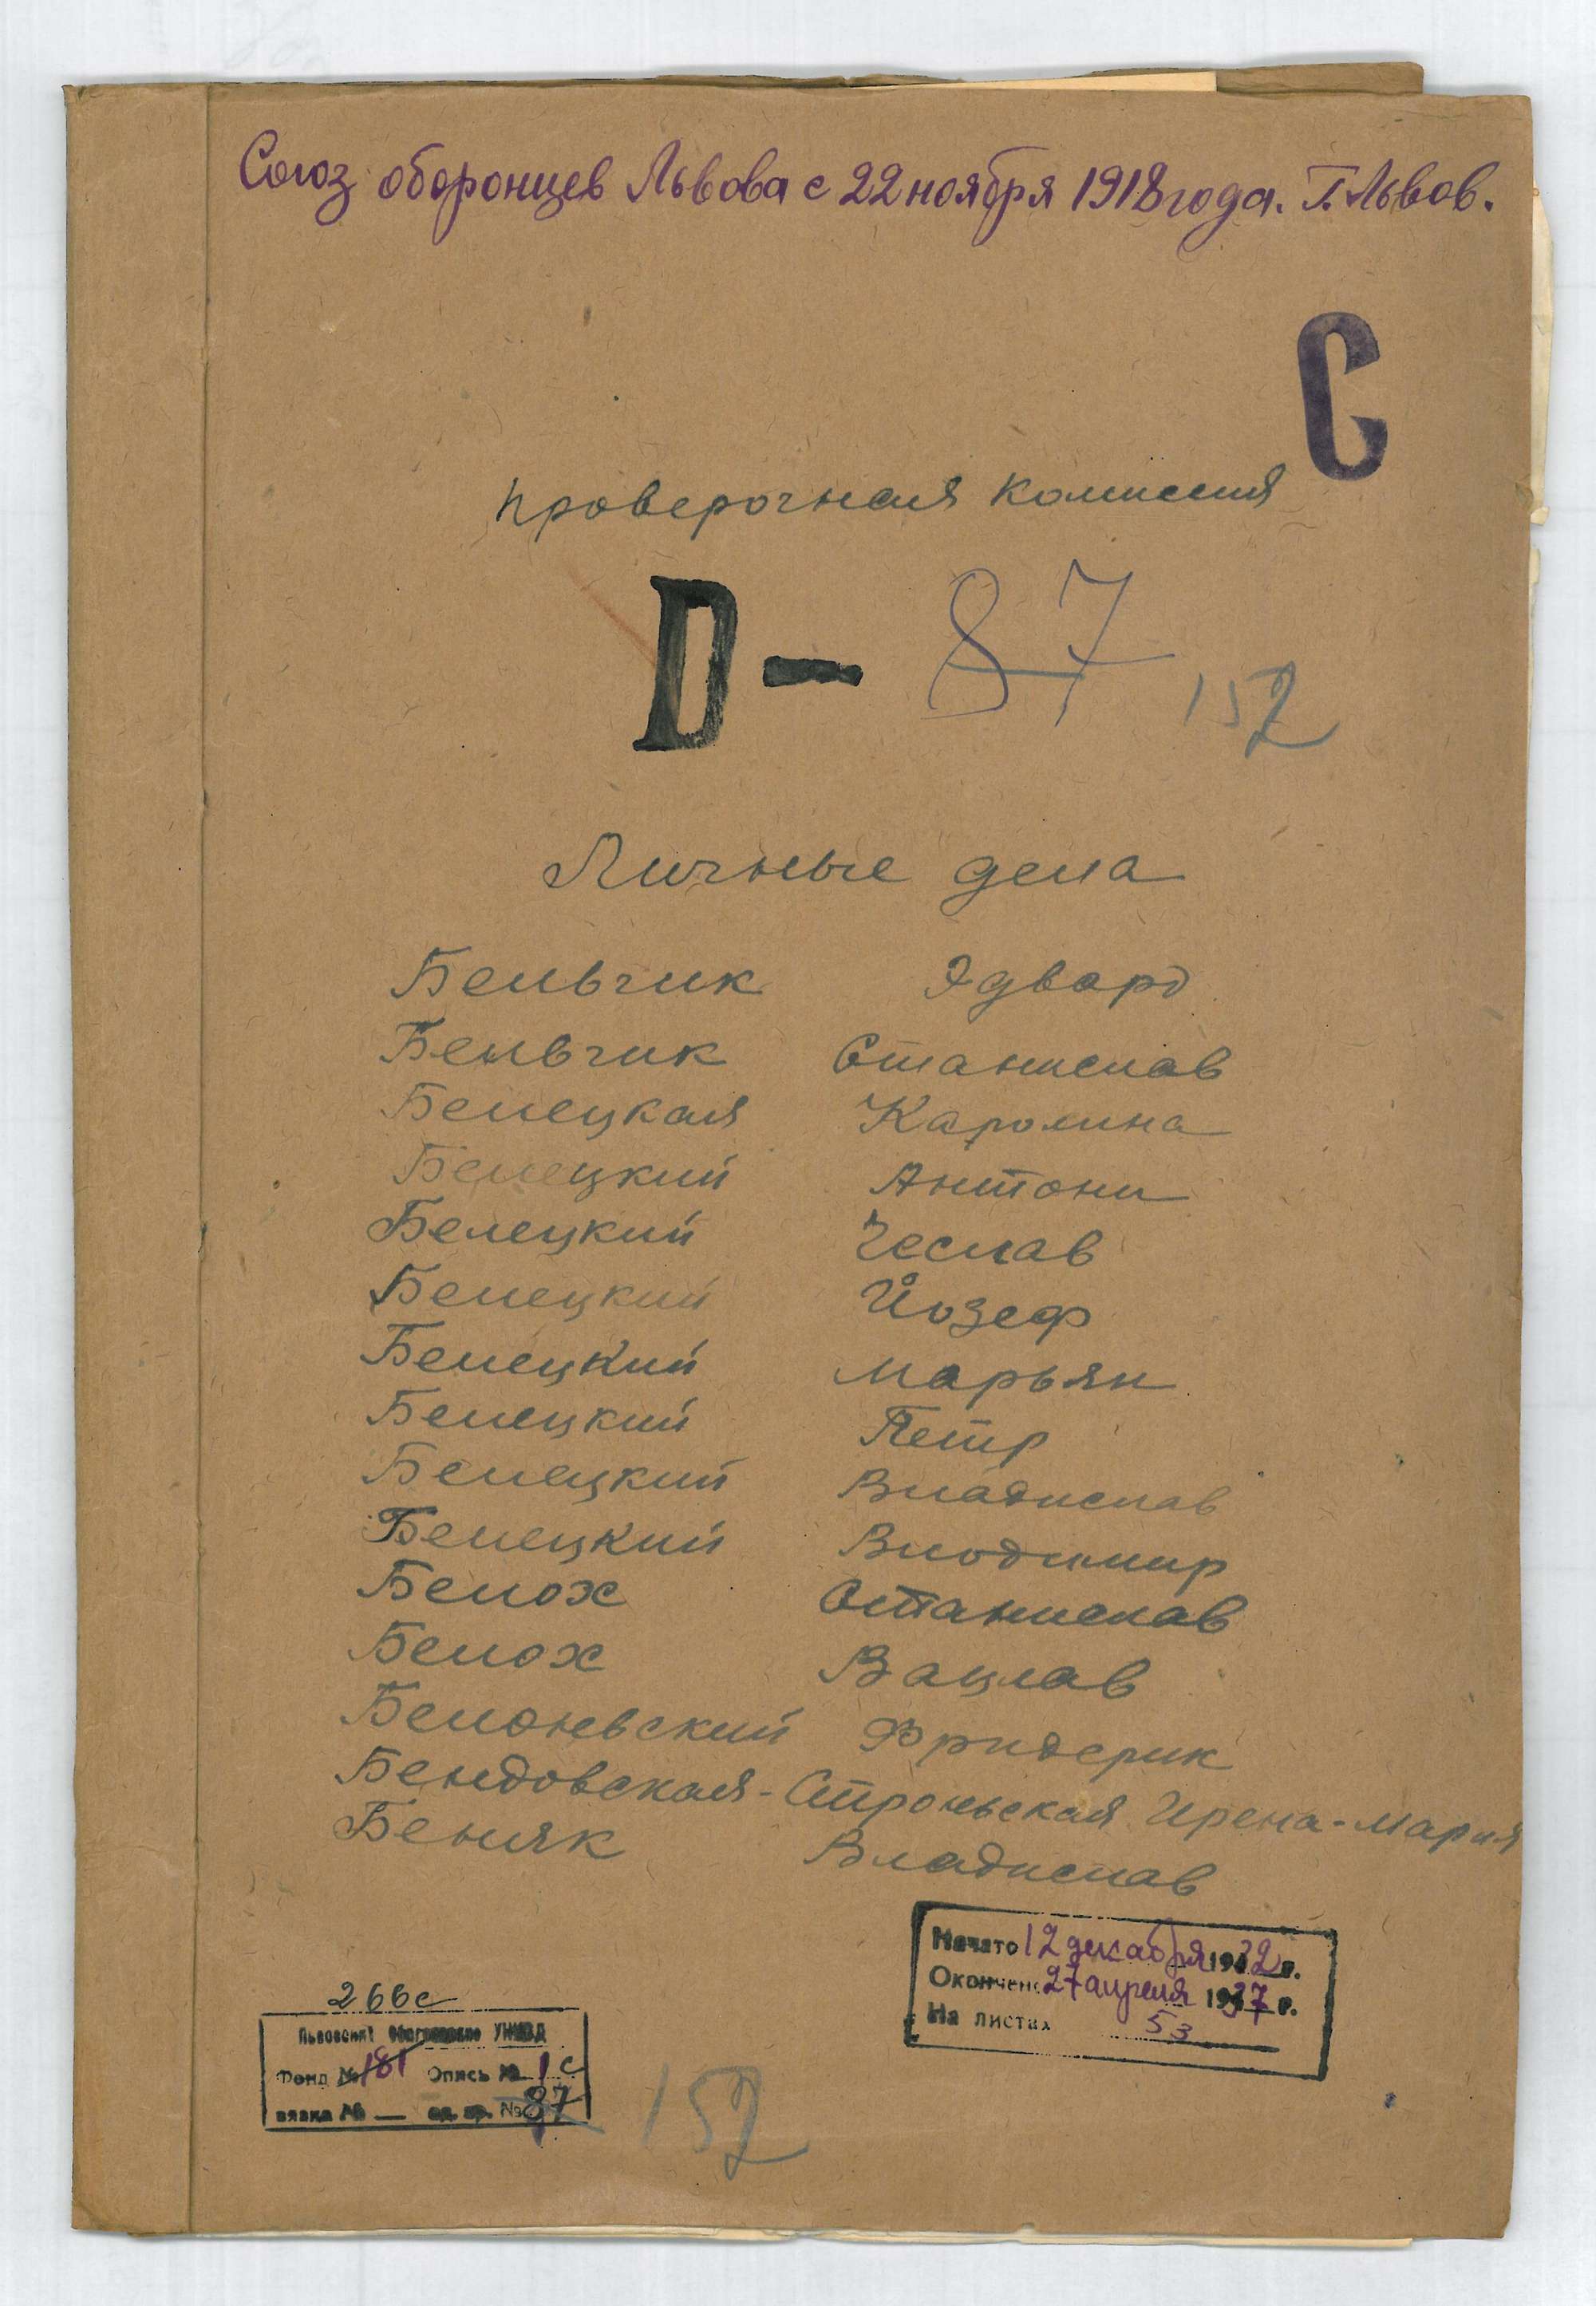 Союз оборонцев Львова с 22 ноября 1918 года. Г. Львов.
С
проверочная комиссия
D - 87
152
Личные дела
Бельчик Эдвард
Беньчик Станислав
Белецкая Каролина
Белецкий Антони
Белецкий Чеслав
Белецкий Йозеф
Белецкий Марьян
Белецкий Петр
Белецкий Владислав
Белецкий Влодимир
Белох Станислав
Белох Вацлав
Белоневский Фридерик
Бендовская-Строньская Ирена-Мария
Беняк Владислав
Начато 12 декабря 1932 г.
Окончено 27 апреля 1937 г.
На листах 53
266с
Львовский УНКВД
Фонд № 181 Опись № 1 с
вязка № — ед. хр. № 87
152